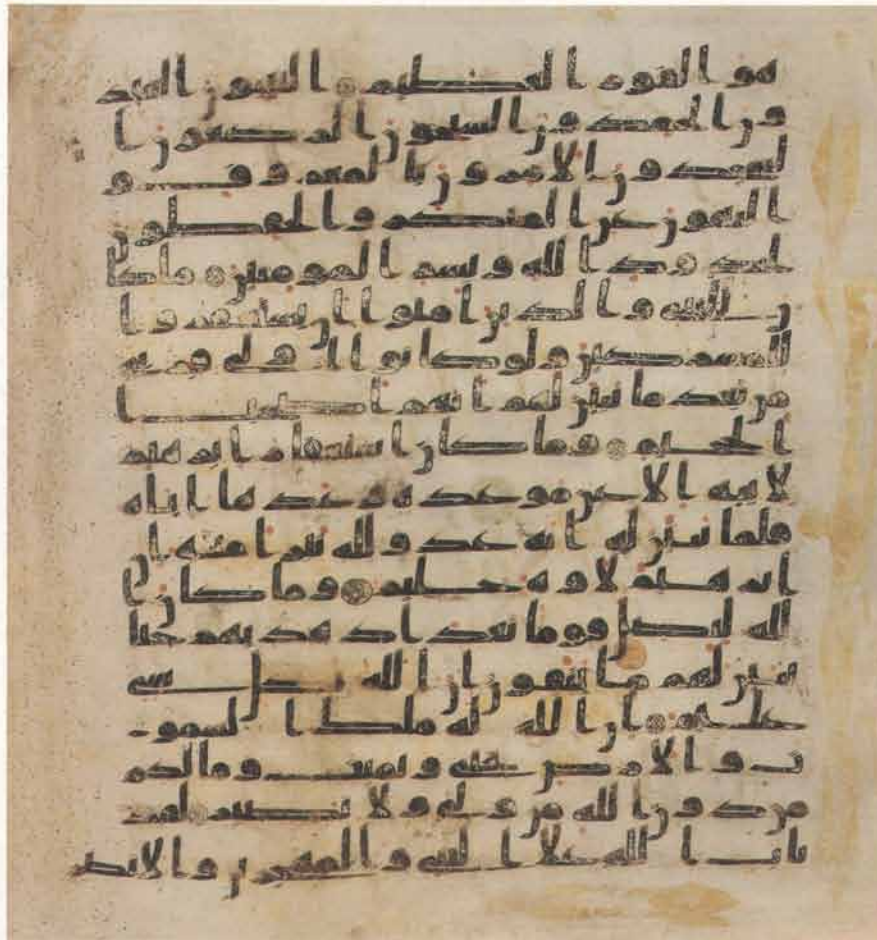 هو الفوز العظيم التيبون العبد
ون الحمدون السيحون الركعون ا
لسجدون الامرون بالمعروف و
النهون عن المنكر والحفظون
لحدود الله وبشر المومنين ما كا
ن للنبي والذين امنوا ان يستغفروا
للمشركين ولو كانوا اولي قربى
من بعد ما تبين لهم انهم اصحب
الجحيم وما كان استغفار ابرهيم
لابيه الا عن موعدة وعدها اياه
فلما تبين له انه عدو لله تبرا منه ان
ابرهيم لاوه حليم وما كان ا
لله ليضل قوما بعد اذ هديهم حتى
يبين لهم ما يتقون ان الله بكل شي
عليم ان الله له ملك السمو
ت والارض يحي ويميت وما لكم
من دون الله من ولي ولا نصير لقد
تاب الله على النبي والمهجرين والانصـ